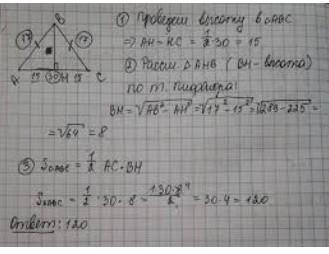 B
17
17
A
15
30
H
15
C
① Проведём высотку в ΔABC
=> AH = HC = 1/2 · 30 = 15
② Рассм. ΔAHB (BH - высота)
по т. Пифагора:
BH = √AB² - AH² = √17² - 15² = √289 - 225 =
= √64 = 8
③ SΔABC = 1/2 AC · BH
SΔABC = 1/2 · 30 · 8 = 130·8⁴/2 = 30 · 4 = 120
Ответ: 120